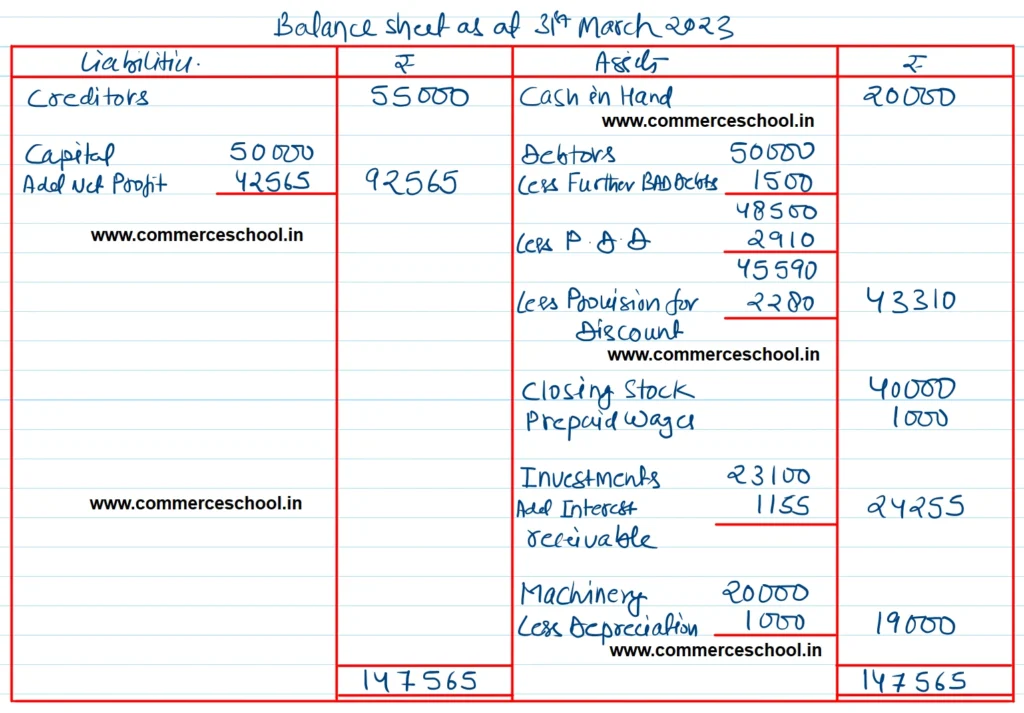 Balance sheet as at 31st March 2023
Liabilities. ₹ Assets ₹
Creditors 55000 Cash in Hand 20000
www.commerceschool.in
Capital 50000 Debtors 50000
Add Net Profit 42565 92565 Less Further BAD Debts 1500
48500
www.commerceschool.in Less P.D.D 2910
45590
Less Provision for 2280 43310
Discount
www.commerceschool.in
Closing Stock 40000
Prepaid Wages 1000
Investments 23100
www.commerceschool.in Add Interest 1155 24255
receivable
Machinery 20000
Less Depreciation 1000 19000
www.commerceschool.in
147565 147565